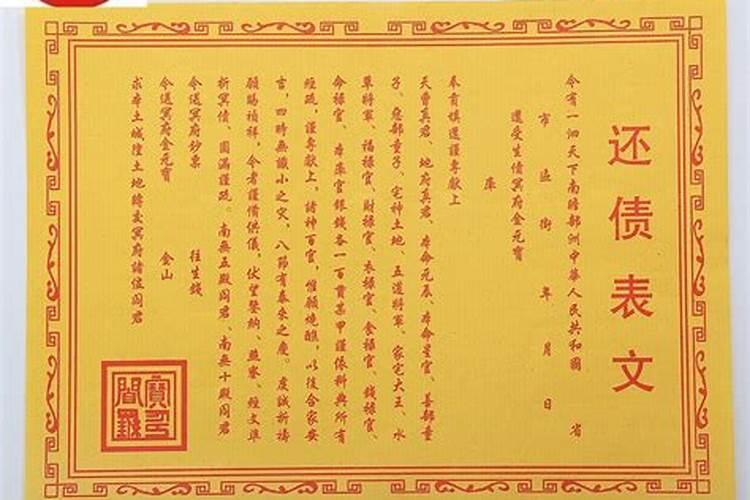 还债表文
今有一泗天下南瞻部洲中華人民共和國 省
市 區 街 年 月 日
還受生債冥府金元寶
庫
奉有填還謹專獻上
天曹真君、地府真君、本命元辰、本命星官、善部童
子、惡部童子、宅神土地、五道將軍、家宅大王、水
草將軍、福禄官、財禄官、衣禄官、食禄官、錢禄官、
命禄官、本庫官銀錢各一百貫某甲謹依科典所有
經疏，謹專獻上，諸神百官，惟願燒醮，以後合家安
言，四時無讖小之灾，八節有泰來之慶。虔誠祈禱
願賜禎祥，令者謹備供儀，伏望鑒納、熊寥、經文準
折冥債、圓滿謹疏。南無五殿阎君、南無十殿阎君
令送冥府鈔票 往生錢
令送冥府金元寶 金山
求本土城隍土地轉交冥府諸位阎君